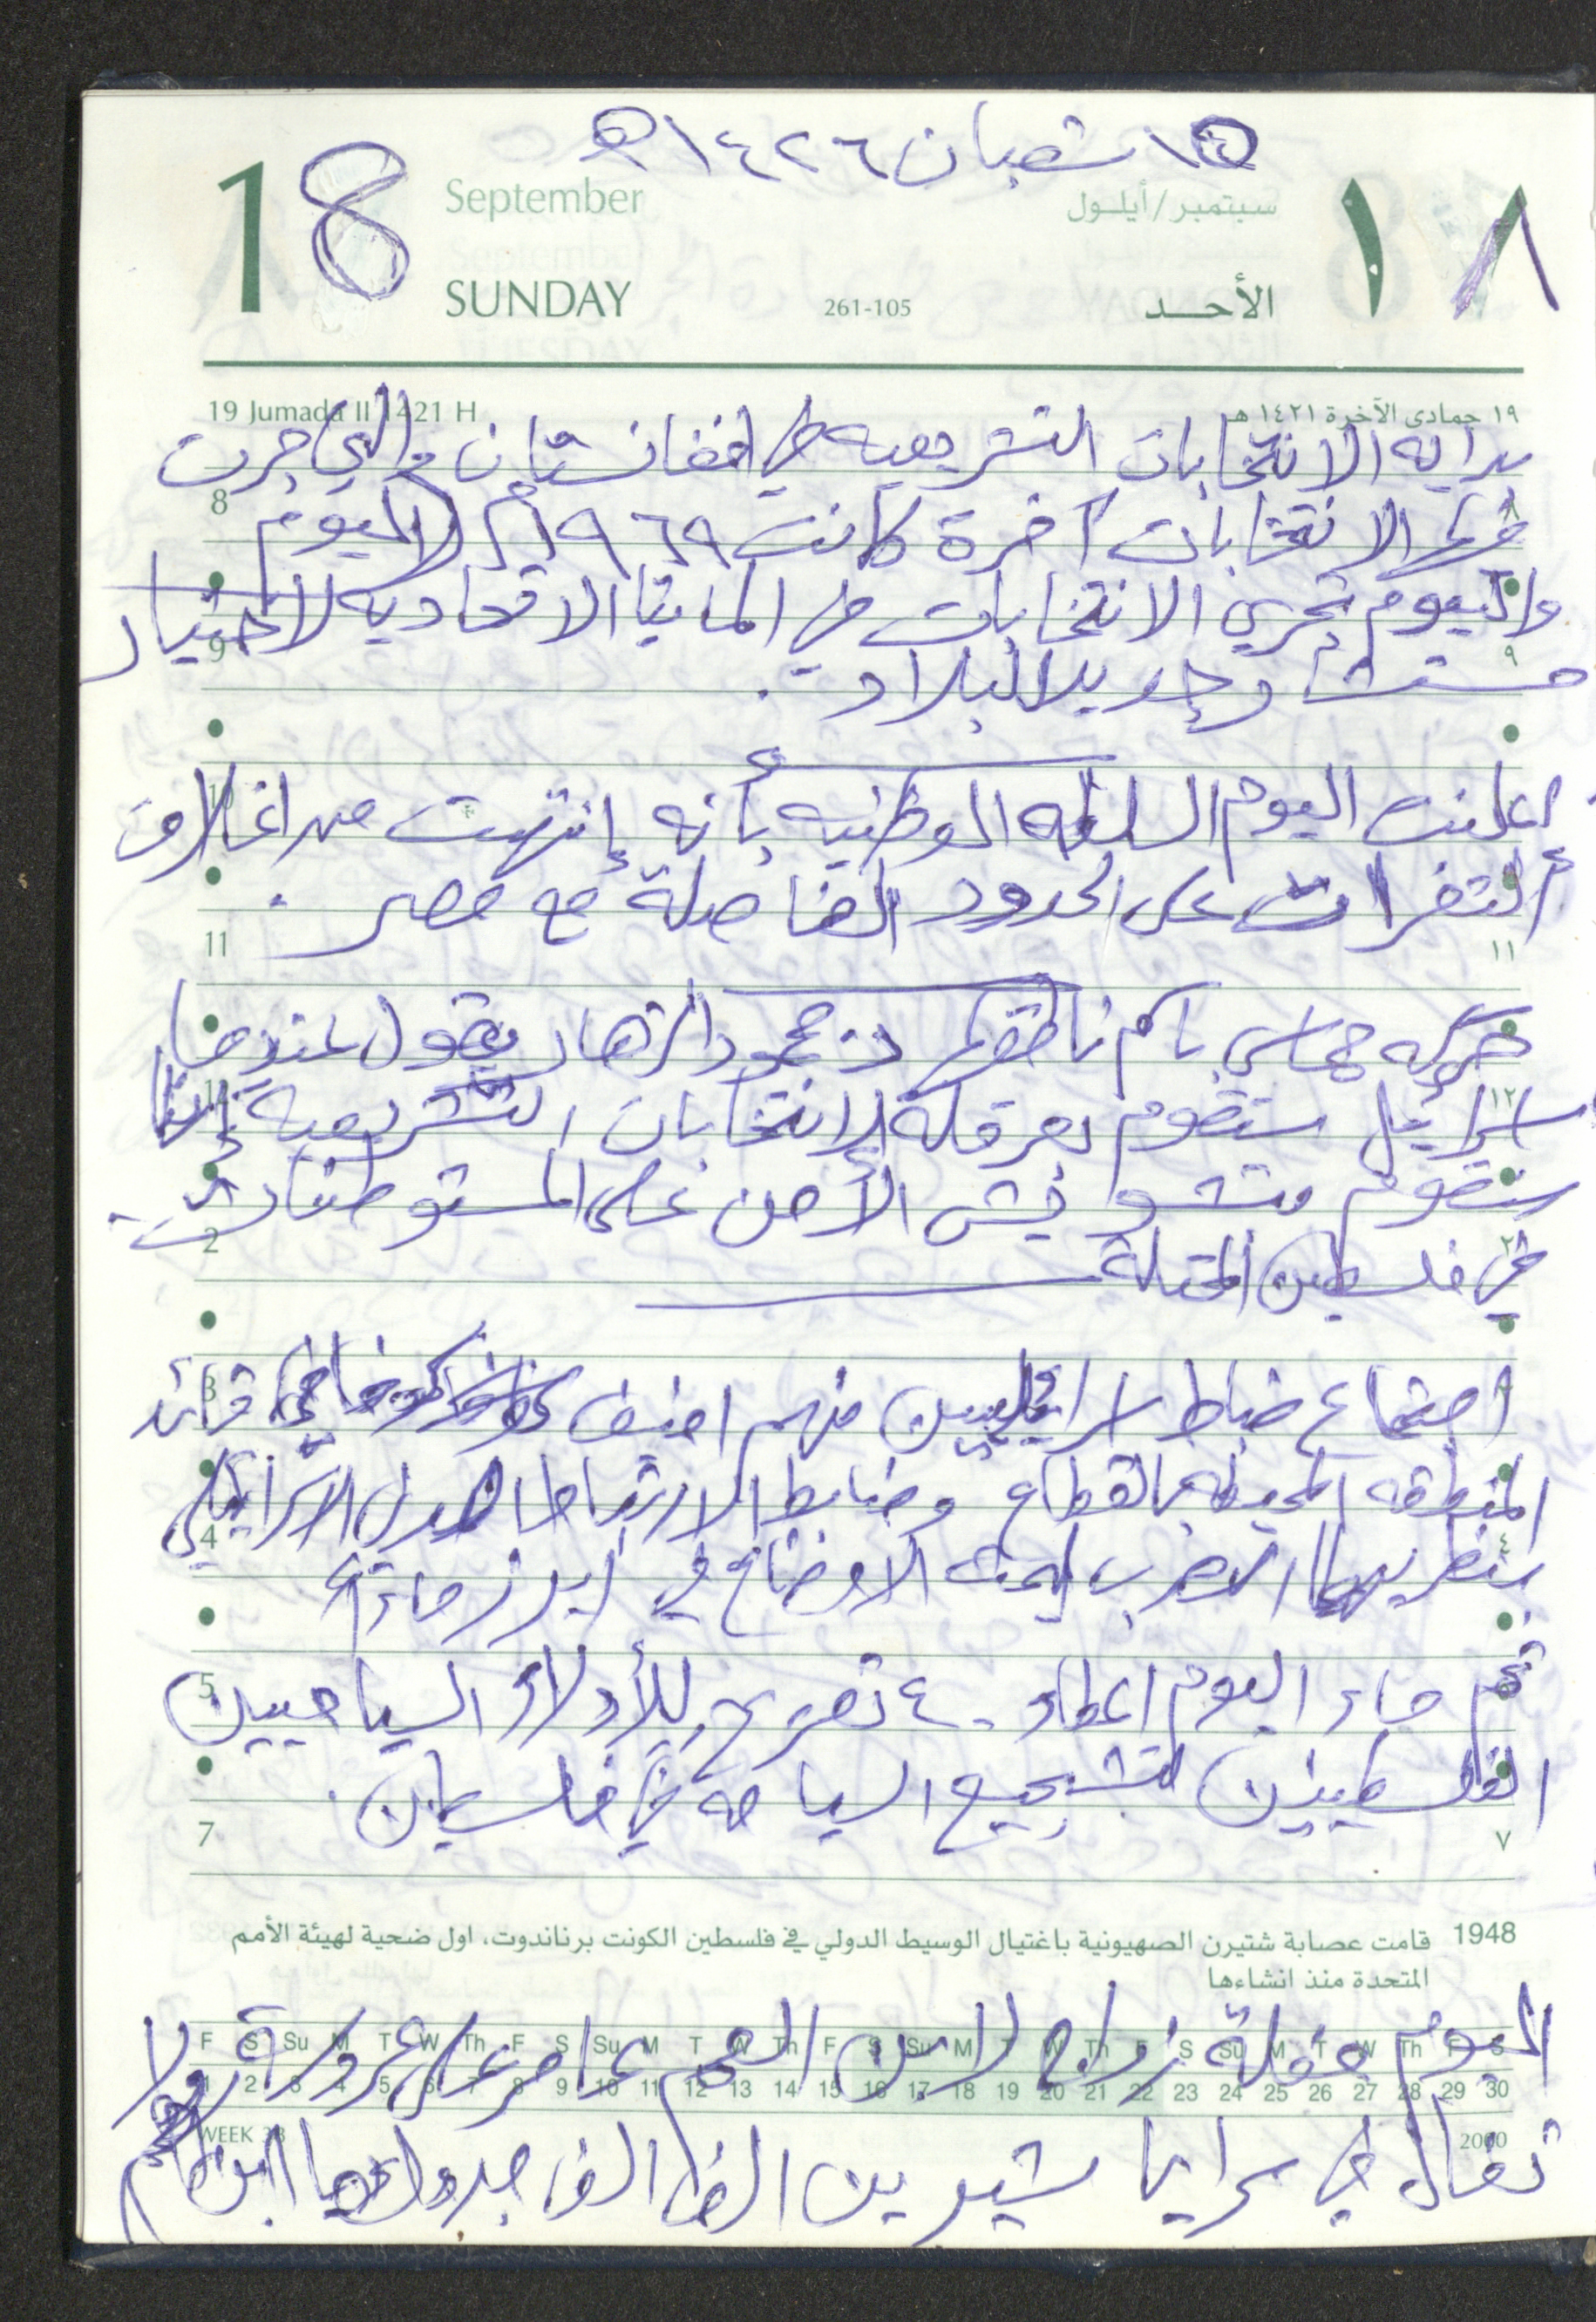 ١٥ شعبان ١٤٢٦ هـ
18 September سبتمبر/أيلول ١٨
SUNDAY 261-105 الأحد
19 Jumada II 1421 H ١٩ جمادى الآخرة ١٤٢١ هـ
بدايه الانتخابات التشريعيه في افغانستان والتي جرت
فيها الانتخابات آخرة كانت ١٩٦٩م اليوم
واليوم تجري الانتخابات في المانيا الاتحاديه لاختيار
مستشار جديد للبلاد .
اعلنت اليوم السلطه الوطنيه بأنه إنتهت من اغلاق
الثغرات على الحدود الفاصلة مع مصر .
حركه حماس باسم ناطقها د. محمود الزهار يقول عندما
اسرائيل ستقوم بعرقلة الانتخابات التشريعية إننا
سنقوم بتشويش الأمن على المستوطنات
في فلسطين المحتلة
اجتماع ضباط اسرائيليين منهم افيف كوخافي قائد
المنطقه المحيطه بالقطاع وضابط الارتباط الاسرائيلي
بنظريهما العرب لبحث الاوضاع في ايرز
ثم جاء اليوم اعطاء ٤٠ تصريح للأدلاء السياحيين
الفلسطينين لتشجيع السياحه في فلسطين .
1948 قامت عصابة شتيرن الصهيونية باغتيال الوسيط الدولي في فلسطين الكونت برناندوت، اول ضحية لهيئة الأمم
المتحدة منذ انشاءها
اليوم حفلة زواج لابن العم عامر علي عروسة ولا
F S Su M T W Th F S Su M T W Th F S Su M T W Th F S Su M T W Th F S
1 2 3 4 5 6 7 8 9 10 11 12 13 14 15 16 17 18 19 20 21 22 23 24 25 26 27 28 29 30
WEEK 38 2000
تقال في سرايا بين الف الف مبروك يا ابن العم